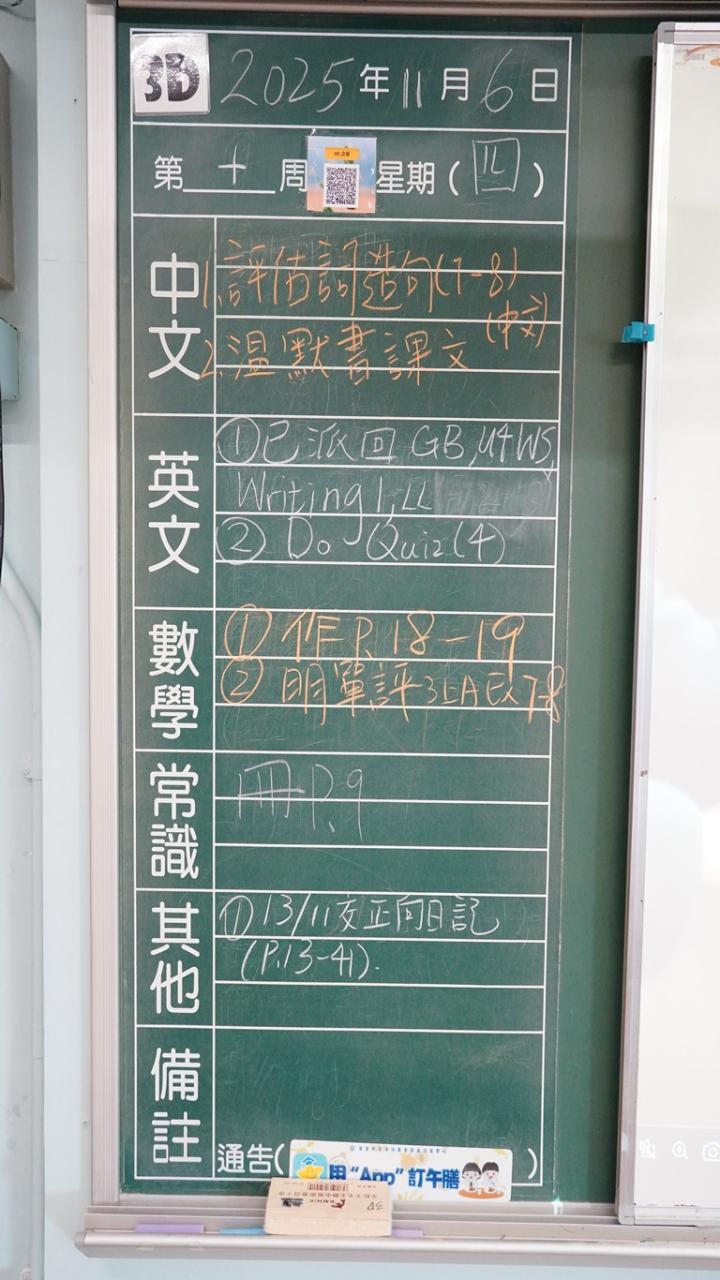 3D 2025年11月6日
第十周 星期(四)
中文
1.評估詞造句(7-8)
(中文)
2.溫默書課文
英文
①已派回GB,U4WS,
Writing1,LL
② Do Quiz(4)
數學
①作P.18-19
②明單評3LA Ex7-8
常識
冊P.9
其他
①13/11交正向日記
(P.13-41).
備註
通告( )
用“App”訂午膳